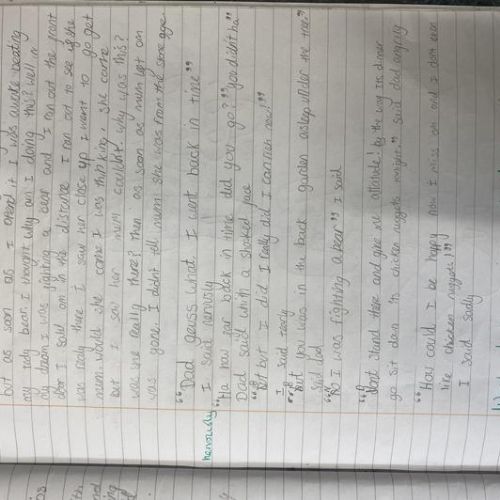 but as soon as I opend it I was awake beating
my tedy bear. I thought why am I doing this? well in
my dream I was fighting a bear and I ran out the front
door I saw om in the distance I ran out to see if she
was realy there I saw her close up I went to go get
mum. would she come I was thinking, she come
but I saw her mum couldn't. why was this?
was she really there? then as soon as mum left om
was gone. I didn't tell mum she was from the stone age.
"Dad geuss what I went back in time"
I said nervously
nervously
"Ha how far back in time did you go?" "you didn't ha"
Dad said with a shocked face
"but but I did I really did I can see now!"
I said
"But you was in the back garden asleep under the tree."
said Dad
"No I was fighting a bear" I said
"dont stand there and give me attatude! by the way its diner
go sit down its chicken nuggets tonight." said dad angrily
"How could I be happy now I miss om and I don't even
like chicken nuggets!"
I said sadly